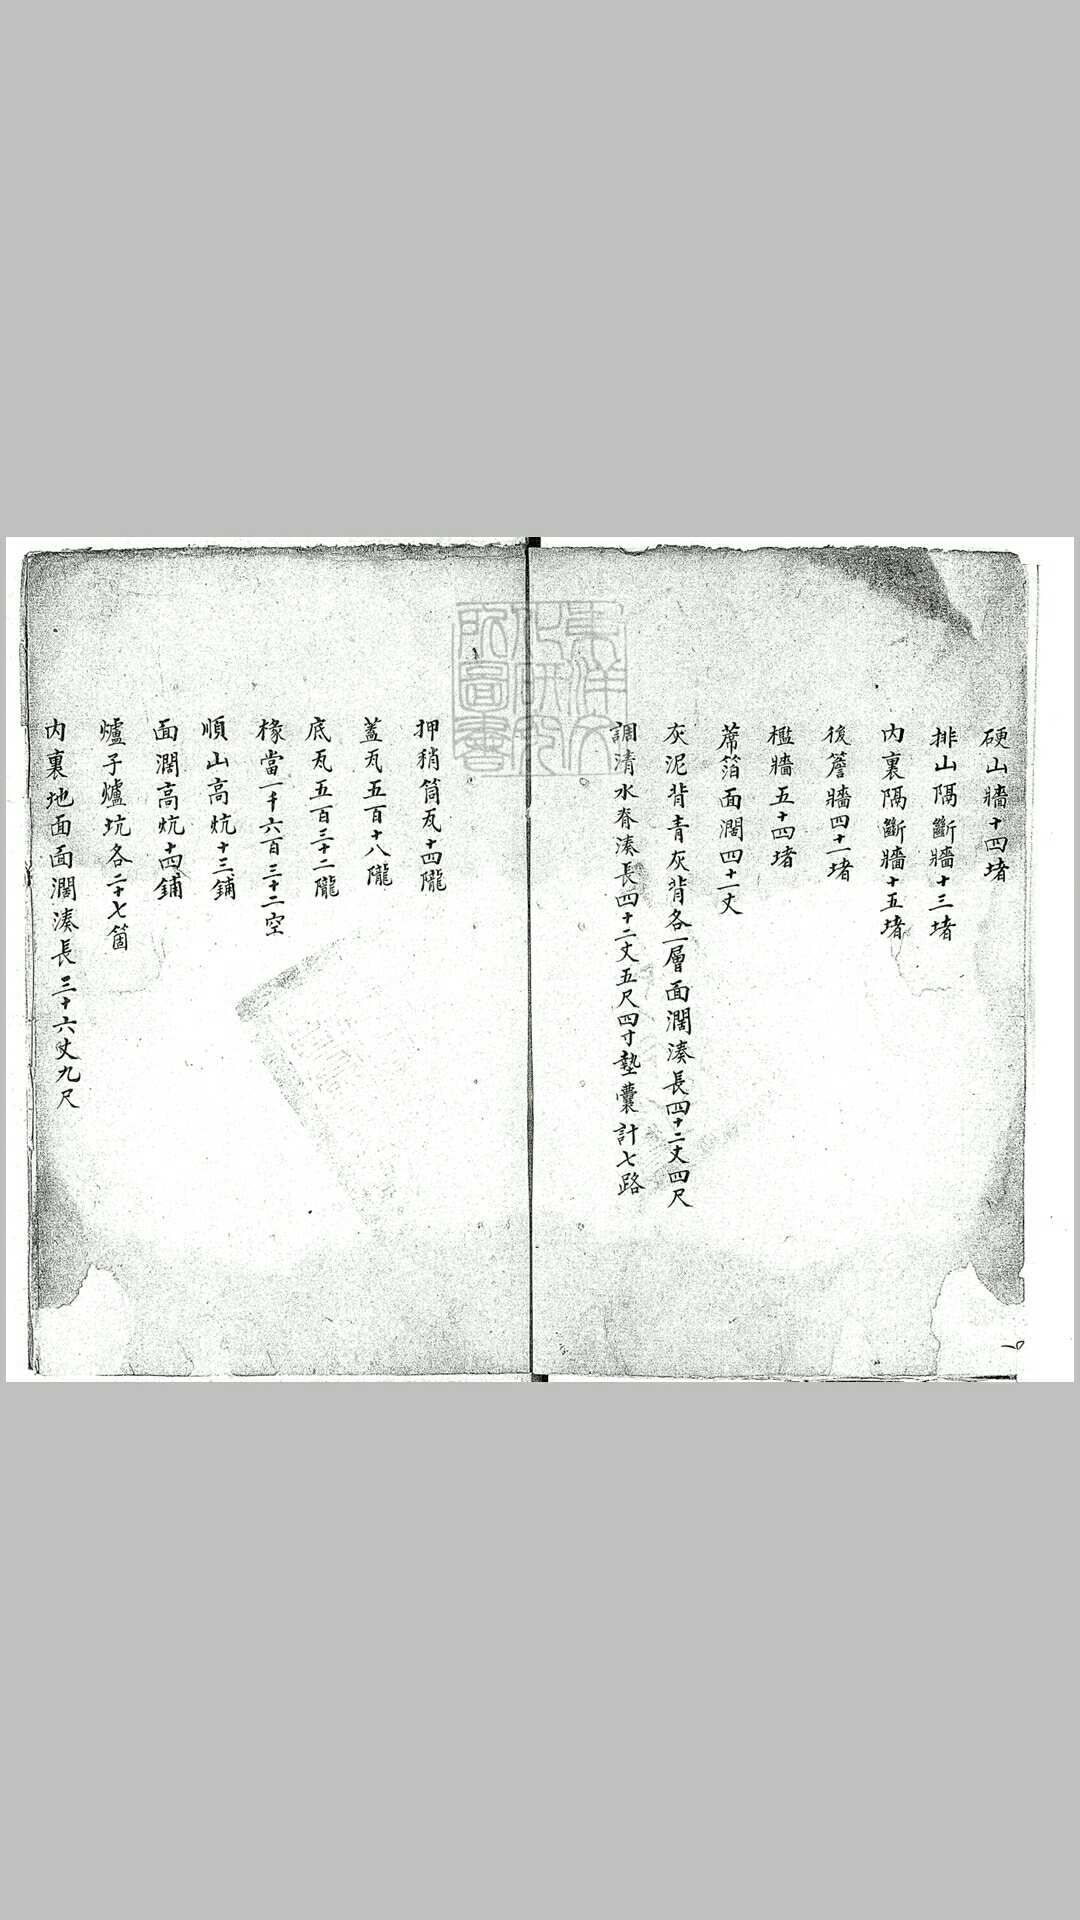 硬山牆十四堵
排山隔斷牆十三堵
內裏隔斷牆十五堵
後簷牆四十一堵
檻牆五十四堵
蓆箔面濶四十一丈
灰泥背青灰背各一層面濶湊長四十二丈四尺
調清水脊湊長四十二丈五尺四寸墊囊計七路
押稍筒瓦十四隴
蓋瓦五百十八隴
底瓦五百三十二隴
椽當一千六百三十二空
順山高炕十三鋪
面濶高炕十四鋪
爐子爐坑各二十七箇
內裏地面面濶湊長三十六丈九尺
東洋文
化研究
所圖書